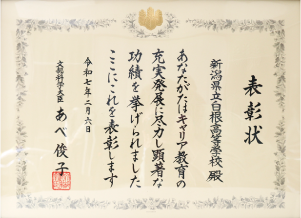 表彰状
新潟県立白根高等学校 殿
あなたがたはキャリア教育の
充実発展に尽力し顕著な
功績を挙げられました
ここにこれを表彰します
令和七年二月六日
文部科学大臣 あべ俊子